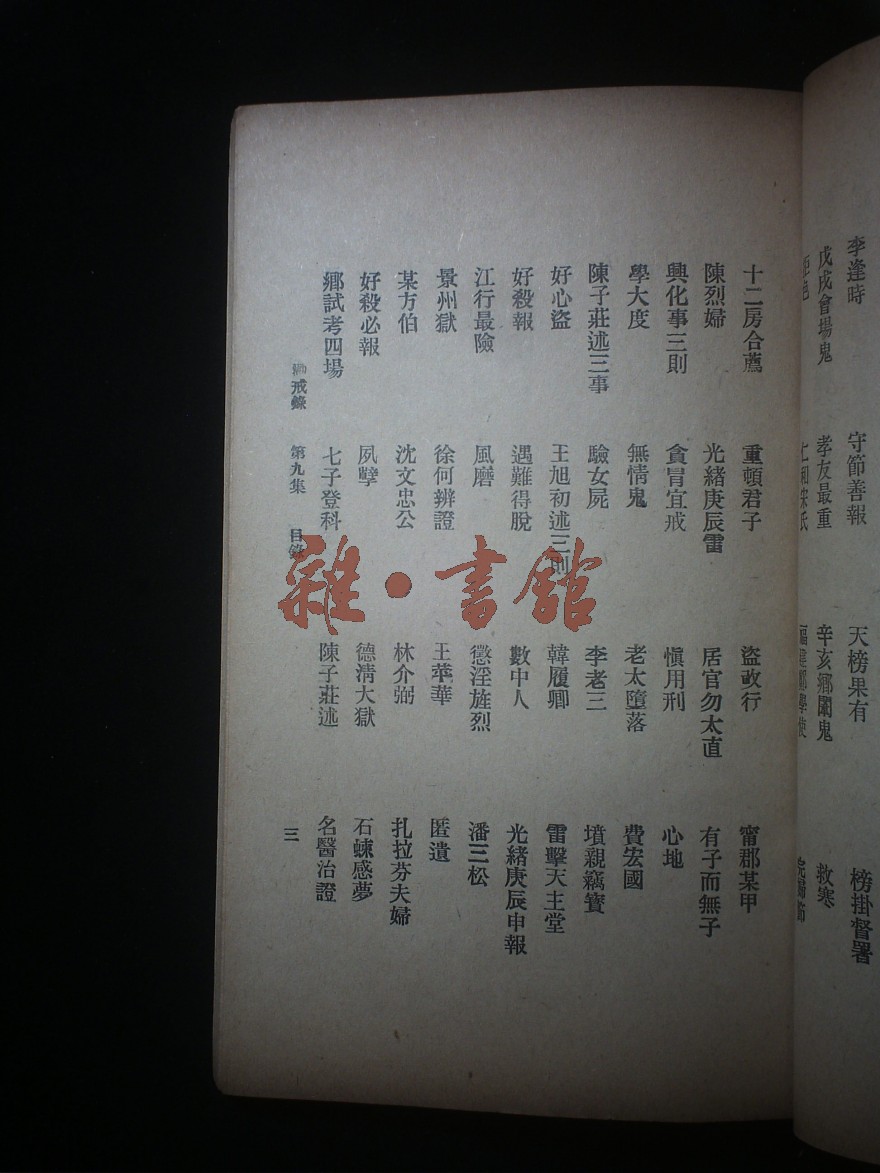 李逢時 守節善報 天榜果有 榜掛督署
戊戌會場鬼 孝友最重 辛亥鄉闈鬼 救寒
十二房合薦 重頓君子 盜改行 甯郡某甲
陳烈婦 光緒庚辰雷 居官勿太直 有子而無子
興化事三則 貪冒宜戒 愼用刑 心地
學大度 無情鬼 老太墮落 費宏國
陳子莊述三事 驗女屍 李老三 墳親竊寶
好心盜 王旭初述三則 韓履卿 雷擊天主堂
好殺報 遇難得脫 數中人 光緒庚辰申報
江行最險 風磨 懲淫旌烈 潘三松
景州獄 徐何辨證 王苹華 匿遺
某方伯 沈文忠公 林介弼 扎拉芬夫婦
好殺必報 夙孽 德清大獄 石蝀感夢
鄉試考四場 七子登科 陳子莊述 名醫治證
戒錄 第九集 目錄 三
雜·書館